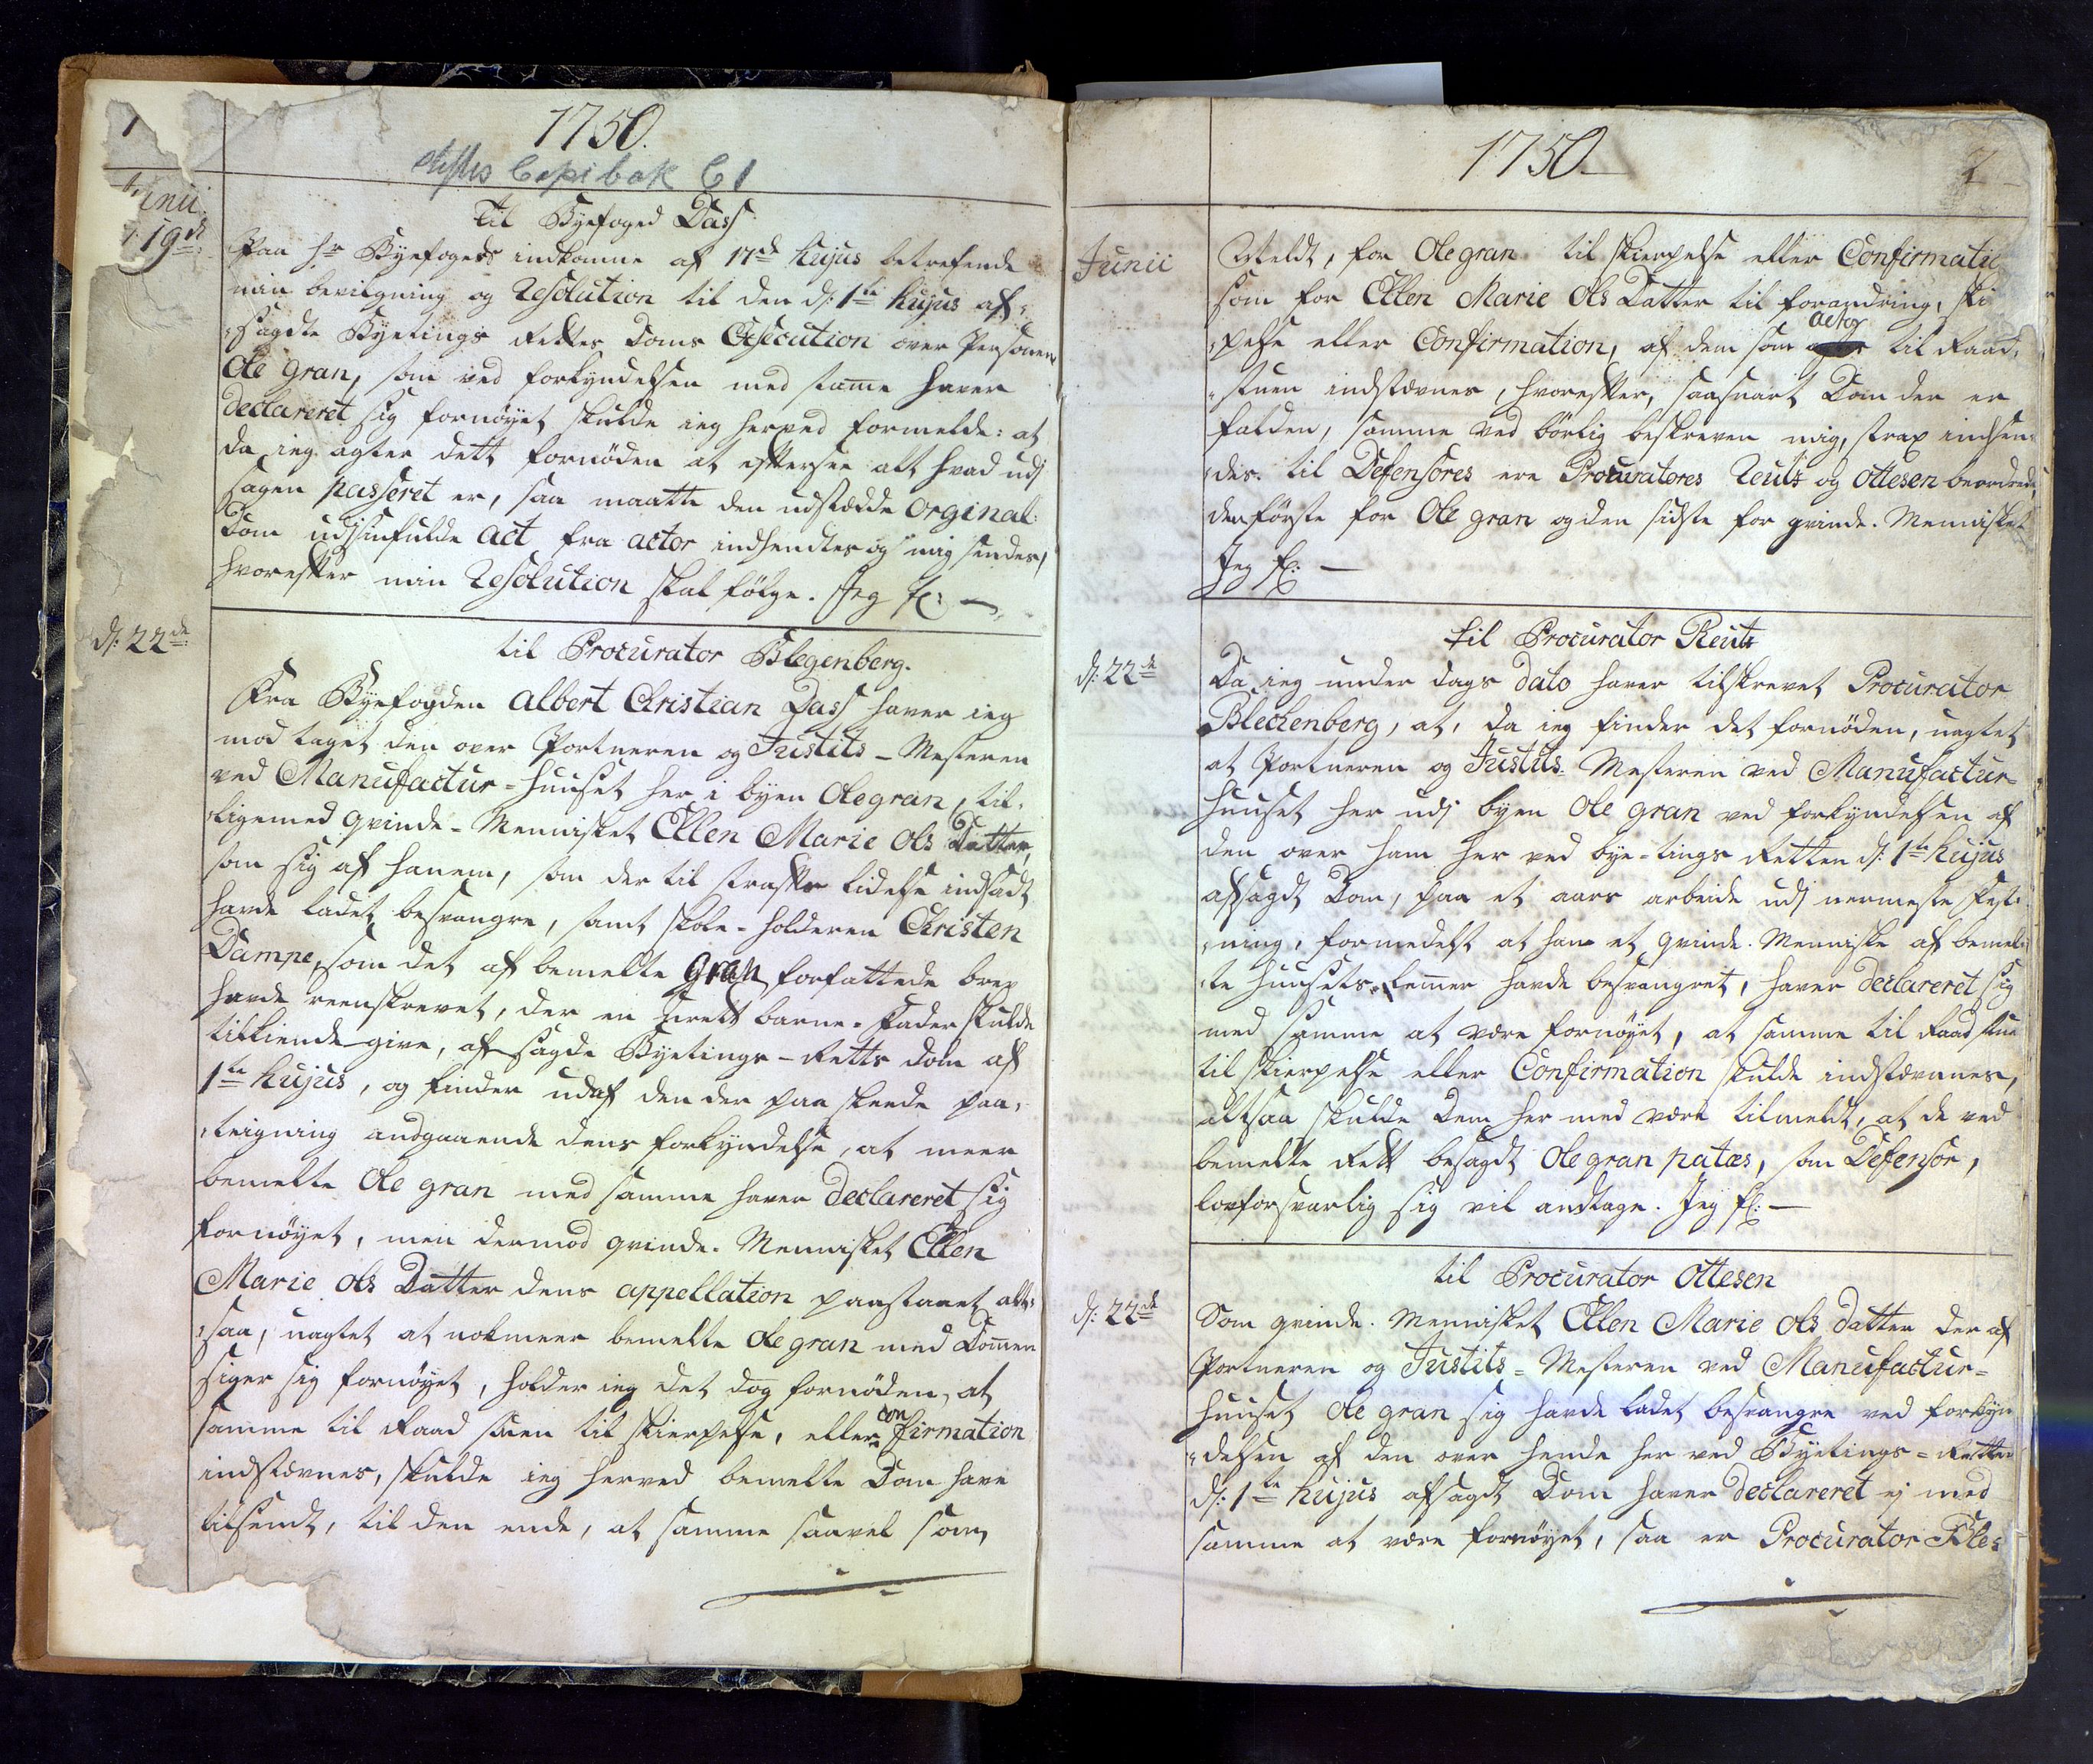 1750.
Copibok C1
Junii
19de
Til Byefoged Dass
Paa Hr Byefogeds indkomne af 17de hujus betrefende
min bevilgning og Resolution til den d: 1te hujus af-
sagdte Byetings Rettes Doms Execution over Personen
Ole Gran, som ved forkyndelsen med samme haver
declareret sig fornöyet skulde ieg herved formelde: at
da ieg agter dett fornöden at eftersee alt hvad udj
Sagen passeret er, saa maatte den udstædde Orginal
Dom udj sin fulde Act fra actor indhendtes og mig sendes,
hvorefter min Resolution skal fölge. Jeg p: —
d: 22de
til Procurator Blegenberg.
Fra Byefogden Albert Christian Dass haver ieg
mod taget den over Portneren og Justits-Mesteren
ved Manufactur-Huuset her i byen Ole gran, til-
ligemed qvinde-Mennisket Ellen Marie Ols Datter,
som sig af hanem, som der til straffes lidelse indsadt
havde ladet besvangre, samt skole-holderen Christen
Dampe, som det af bemelte Gran forfattede brev
havde reenskrevet, der en urett barne-Fader skulde
tilkiende give, af sagde Byetings-Retts dom af
1te hujus, og finder udaf den der paa skeede paa-
teigning andgaaende dens forkyndelse, at meer
bemelte Ole gran med samme haver declareret sig
fornöyet, men dermod qvinde-Mennisket Ellen
Marie Ols Datter dens appellation paastaaet alt-
saa, uagtet at nokmeer bemelte Ole gran med Dommen
siger sig fornöyet, holder ieg det dog fornöden, at
samme til Raad stuen til skierpelse, eller Confirmation
indstævnes, skulde ieg herved bemelte Dom have
tilsendt, til den ende, at samme saavel som
1750
2
Junii
Meldt, for Ole gran til skierpelse eller Confirmatio
som for Ellen Marie Ols Datter til forandring, ski
pelse eller Confirmation, af dem som actor til Raad-
stuen indstævnes, hvorefter, saasnart Dom der er
falden, samme ved börlig beskreven mig, strax indsen-
des. til Defensores ere Procuratores Reutz og Ottesen beordrede,
den förste for Ole gran og den sidste for qvinde-Mennisket
Jeg p: —
d: 22de
til Procurator Reutz
Da ieg under dags dato haver tilskrevet Procurator
Bleckenberg, at, da ieg finder det fornöden, uagtet
at Portneren og Justits-Mesteren ved Manufactur-
Huuset her udj byen Ole gran ved forkyndelsen af
den over ham her ved bye-tings Retten d: 1te hujus
afsagdt Dom, paa et aars arbeide udj nermeste Fest-
ning, formedelst at han et qvinde-Menniske af bemel-
te huusets Lemmer havde besvangret, haver declareret sig
med samme at være fornöyet, at samme til Raad stue
til skierpelse eller Confirmation skulde indstævnes,
altsaa skulde Dem her med være tilmeldt, at de ved
bemelte Rett besagdt Ole gran patæs, som Defensor,
lovforsvarlig sig vil andtage. Jeg p: —
d: 22de
til Procurator Ottesen
Som qvinde-Mennisket Ellen Marie Ols datter der af
Portneren og Justits-Mesteren ved Manufactur-
Huuset Ole gran sig havde ladet besvangre ved forkyn
delsen af den over hende her ved Byetings-Retten
d: 1te hujus afsagdt Dom haver declareret ej med
samme at være fornöyet, saa er Procurator Ble-